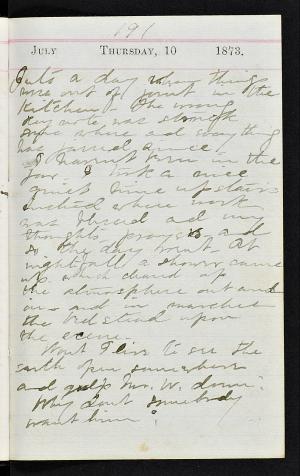 191
July Thursday, 10 1873.
Quite a day when things
was out of joint in the
kitchen. The wrong
key note was struck
some where and everything
has jarred since.
I haven't been in the
jar. I took a nice
quiet time up stairs
where work
was and my
thoughts and
so the day went. At
nightfall a shower came
up which cleared up
the atmosphere out and
in and in marches
the bedstead upon
the scene.
Won't I live to see the
earth open somewhere
and gulp Mrs. W. down?
Why don't somebody
want him?